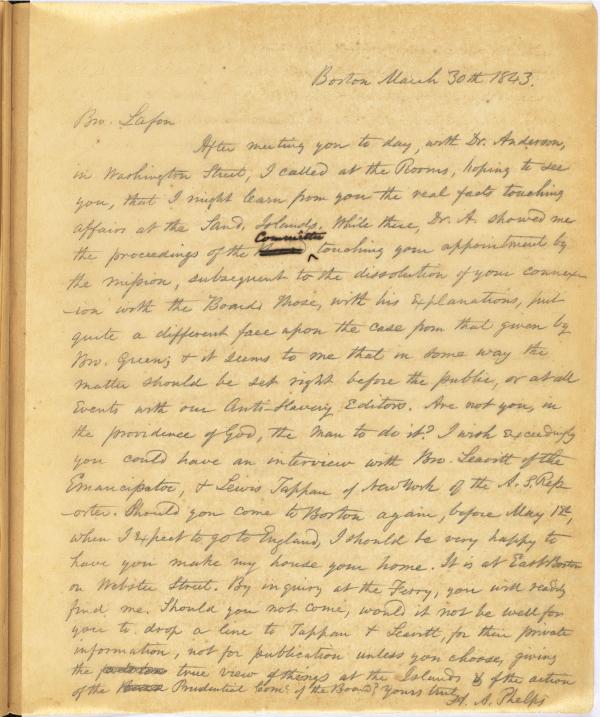 Boston March 30th 1843.
Bro. Lafon
After meeting you to day, with Dr. Anderson,
in Washington Street, I called at the Rooms, hoping to see
you, that I might learn from you the real facts touching
affairs at the Sand. Islands. While there, Dr. A. showed me
the proceedings of the Committee touching your appointment by
the mission, subsequent to the dissolution of your connex-
-ion with the Board; those, with his explanations, put
quite a different face upon the case from that given by
Bro. Green; & it seems to me that in some way the
matter should be set right before the public, or at all
Events with our Anti-Slavery Editors. Are not you, in
the providence of God, the man to do it? I wish exceedingly
you could have an interview with Bro. Leavitt of the
Emancipator, & Lewis Tappan of New York of the A. S. Rep-
-orter. Should you come to Boston again, before May 1st,
when I expect to go to England, I should be very happy to
have you make my house your home. It is at East Boston
on Webster Street. By inquiry at the Ferry, you will readily
find me. Should you not come, would it not be well for
you to drop a line to Tappan & Leavitt, for their private
information, not for publication unless you choose, giving
the true view of things at the Islands & of the action
of the Prudential Com. of the Board? Yours truly
A. A. Phelps